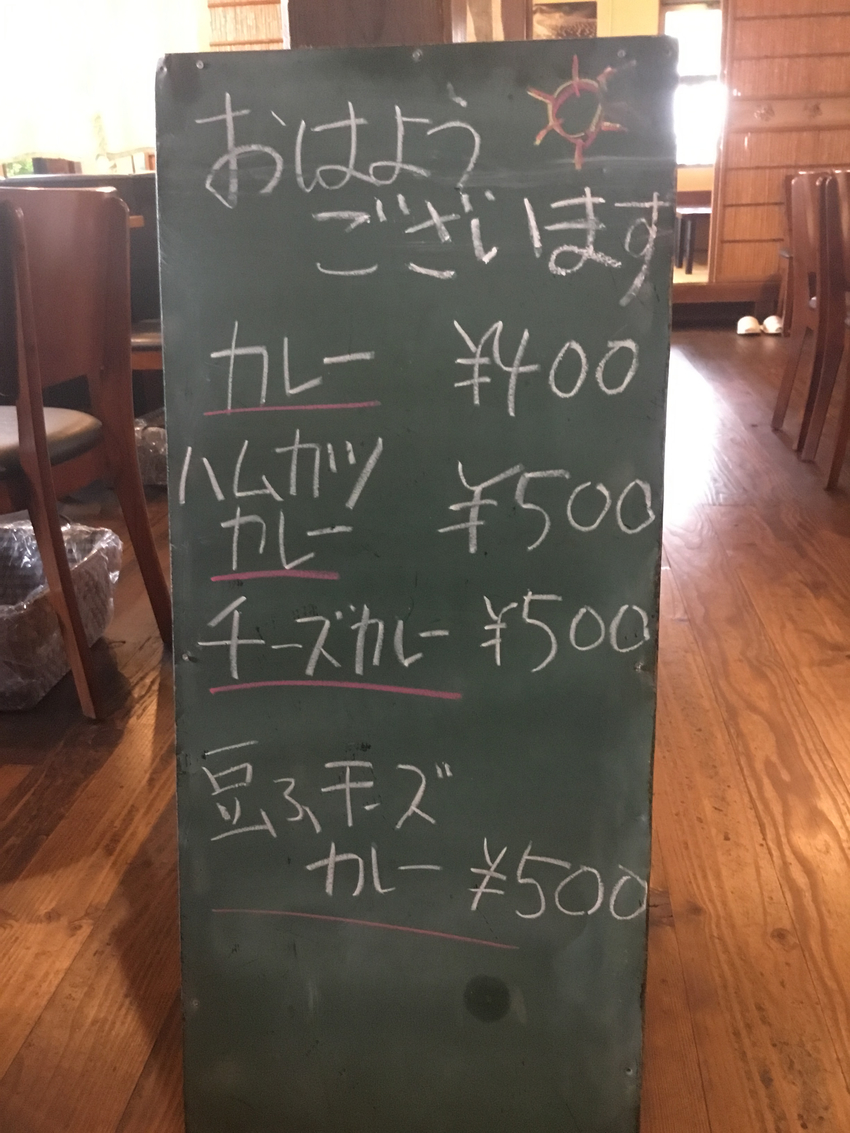 おはよう
ございます
カレー ¥400
ハムカツ
カレー ¥500
チーズカレー ¥500
豆ふチーズ
カレー ¥500